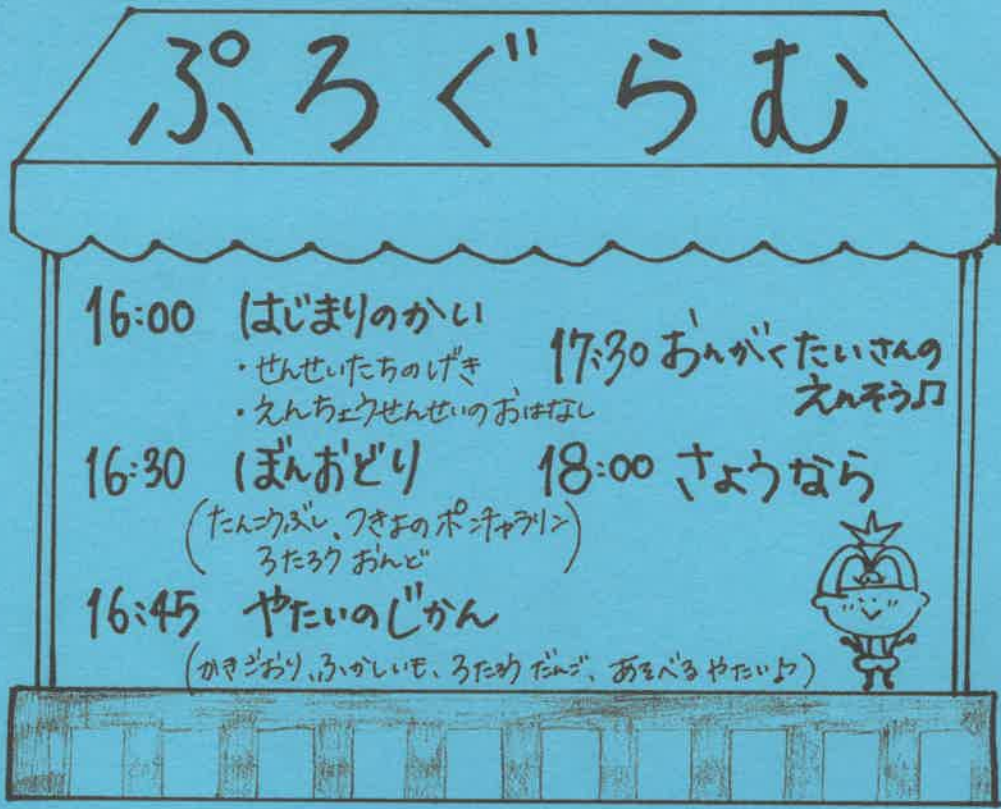 ぷろぐらむ
16:00 はじまりのかい
・せんせいたちのげき
・えんちょうせんせいのおはなし
16:30 ぼんおどり
(たんこうぶし、つきよのポンチャラリン
ろたろう おんど)
16:45 やたいのじかん
(かきごおり、ふかしいも、ろたろう だんご、あそべる やたい♪)
17:30 おんがくたいさんの
えんそう♫
18:00 さょうなら